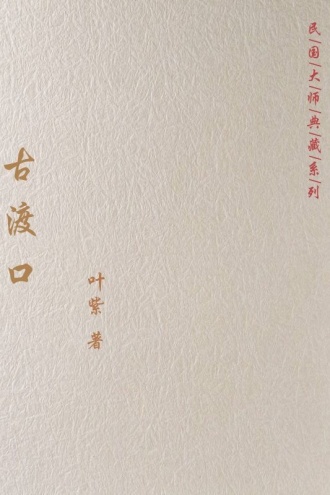 民国大师典藏系列
古渡口
叶紫 著